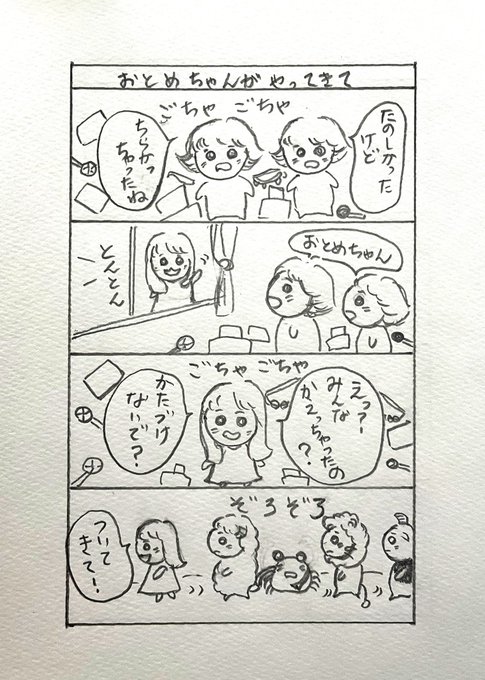 おとめちゃんがやってきて
ごちゃ ごちゃ
たのしかった
けど
ちらかっ
ちゃったね
おとめちゃん
とんとん
ごちゃ ごちゃ
えっ?!
みんな
かえっちゃったの
?
かたづけ
ないで?
ぞろぞろ
ついて
きてー!